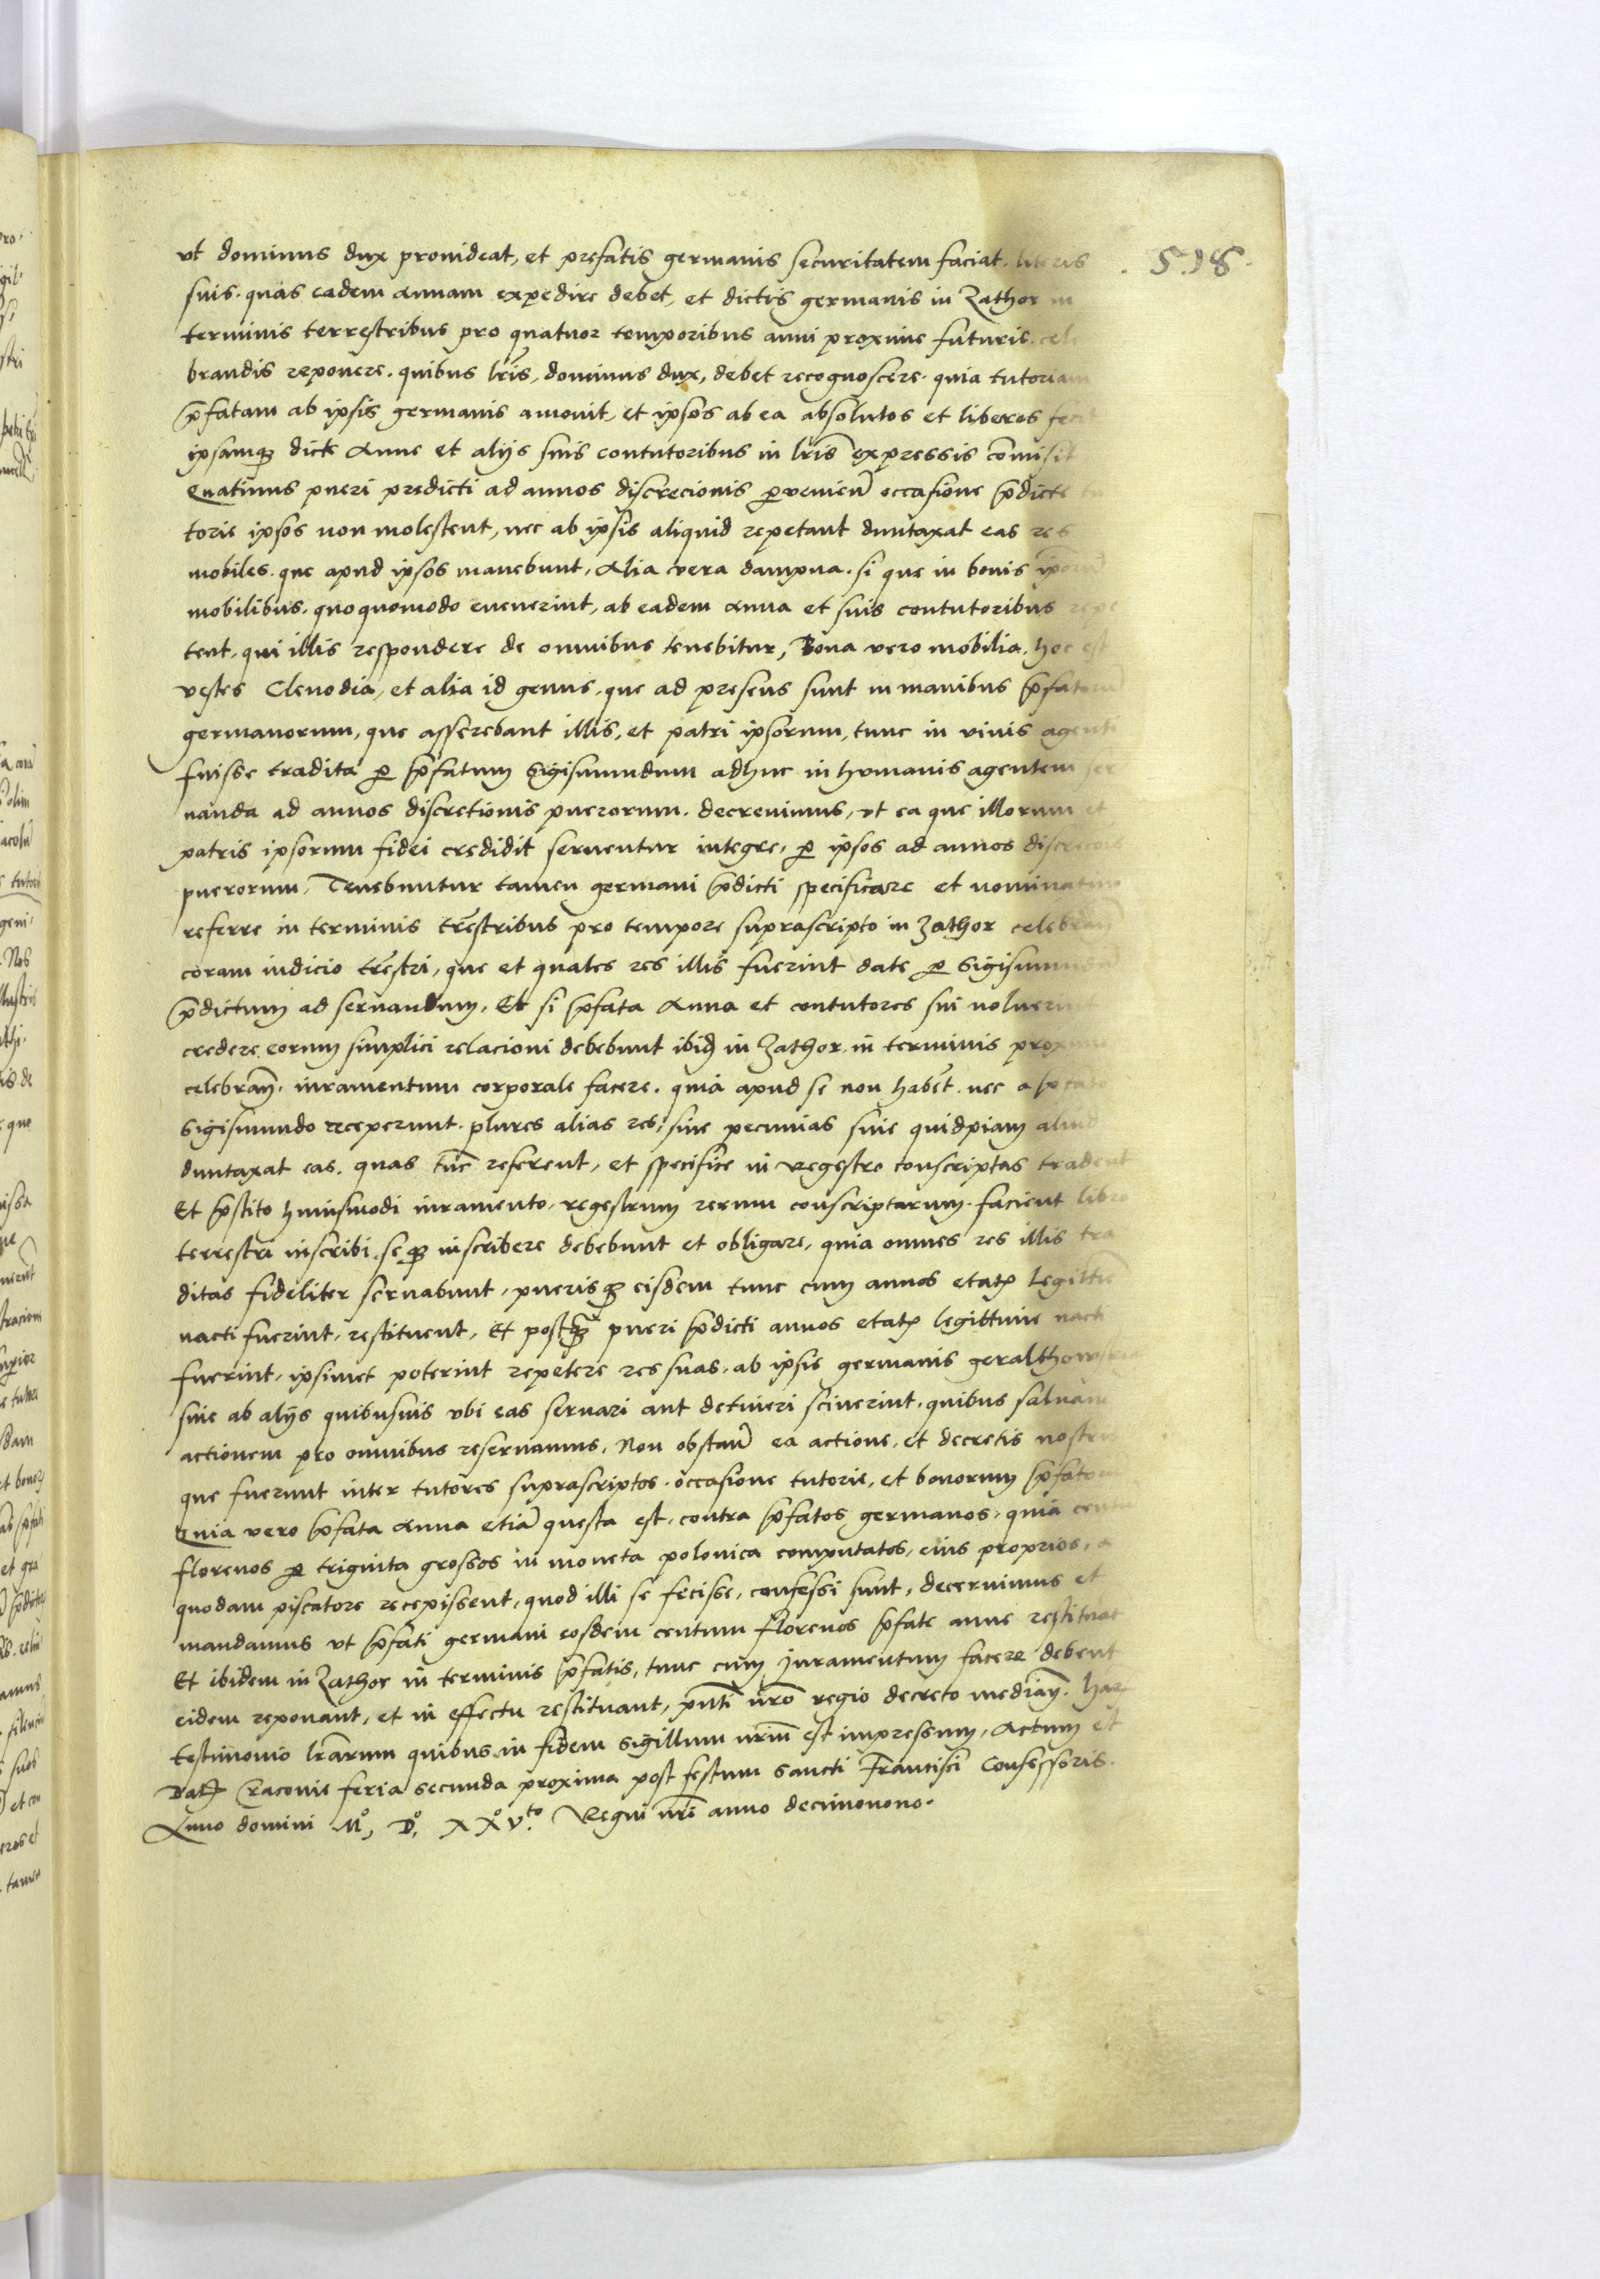 518
ut dominus dux provideat, et prefatis germanis securitatem faciat literis
suis. quas eadem Annam expedire debet, et dictis germanis in Zathor in
terminis terrestribus pro quatuor temporibus anni proxime futuris cele
brandis reponere. quibus lris, dominus dux, debet recognoscere. quia tutoriam
pfatam ab ipsis germanis amovit, et ipsos ab ea absolutos et liberos fecit
ipsamq dicte Anne et alijs suis contutoribus in lris expressis comisit
Quatinus pueri predicti ad annos discrecionis pvenien occasione pdicte tu
torie ipsos non molestent, nec ab ipsis aliquid repetant duntaxat eas res
mobiles. que apud ipsos manebunt, Alia vera dampna. si que in bonis iporu
mobilibus. quoquomodo evenerint, ab eadem Anna et suis contutoribus repe
tent. qui illis respondere de omnibus tenebitur, Bona vero mobilia. hoc est
vestes Clenodia, et alia id genus. que ad presens sunt in manibus pfatoru
germanorum, que asserebant illis, et patri ipsorum, tunc in vivis agenti
fuisse tradita p pfatum Sigismundum adhuc in humanis agentem ser
vanda ad annos discretionis puerorum. decrevimus, ut ea que illorum et
patris ipsorum fidei credidit serventur integre, p ipsos ad annos discrecois
puerorum, Tenebuntur tamen germani pdicti specificare et nominatim
referre in terminis trestribus pro tempore suprascripto in Zathor celebran
coram iudicio trestri, que et quales res illis fuerint date p Sigismundu
pdictum ad servandum. Et si pfata Anna et contutores sui noluerint
credere eorum simplici relacioni debebunt ibid in Zathor in terminis proxime
celebran. iuramentum corporale facere. quia apud se non habet. nec a pfato
Sigismundo receperunt. plures alias res, sive pecunias sive quidpiam aliud
duntaxat eas. quas tuc referent, et specifice in regestro conscriptas tradent
Et pstito huiusmodi iuramento, regestrum rerum conscriptarum. facient libro
terrestri inscribi. seq inscribere debebunt et obligare, quia omnes res illis tra
ditas fideliter servabunt, puerisq eisdem tunc cum annos etatis legittie
nacti fuerint, restituent, Et postq pueri pdicti annos etatis legittime nacti
fuerint, ipsimet poterint repetere res suas, ab ipsis germanis geralthowsky
sive ab alijs quibusvis ubi eas servari aut detineri sciverint. quibus salvam
actionem pro omnibus reservamus, Non obstan ea actione, et decretis nostris
que fuerunt inter tutores suprascriptos. occasione tutorie, et bonorum pfatoru
Quia vero pfata Anna etia questa est, contra pfatos germanos, quia centu
florenos p triginta grossos in moneta polonica computatos, eius proprios, a
quodam piscatore recepissent, quod illi se fecisse, confessi sunt, decernimus et
mandamus ut pfati germani eosdem centum florenos pfate anne restituat
Et ibidem in Zathor in terminis pfatis, tunc cum Juramentum facere debent
eidem reponant, et in effectu restituant, pnti nro regio decreto median. har
testimonio lrarum quibus in fidem sigillum nrum est impressum, Actum et
Dat Cracovie feria secunda proxima post festum Sancti Francisci Confessoris.
Anno domini M°, D°, XX°Vto. Regni nri anno decimonono.